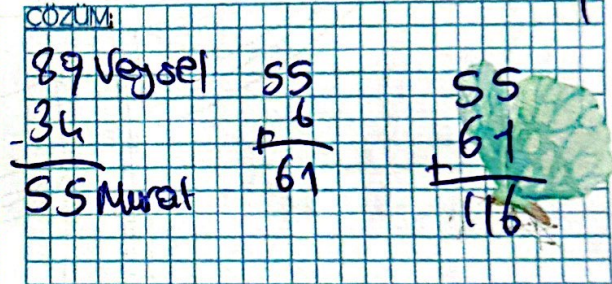 ÇÖZÜM:
89 Veysel
- 34
55 Murat
55
+ 6
61
55
+ 61
116